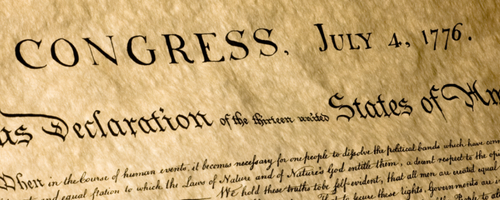 CONGRESS. JULY 4, 1776.
Declaration of the thirteen united States of Am
When in the Course of human events, it becomes necessary for one people to dissolve the political bands which have con
and equal station to which the Laws of Nature and of Nature's God entitle them, a decent respect to the opi
We hold these truths to be self-evident, that all men are created equal
to secure these rights, Governments are in